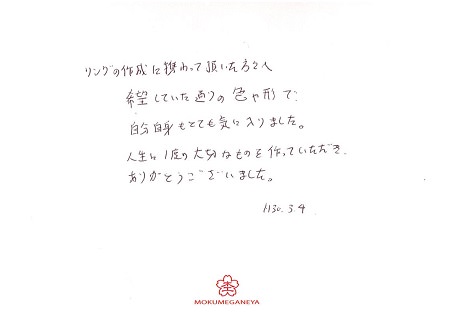 リングの作成に携わって頂いた方々へ
希望していた通りの色や形で
自分自身もとても気に入りました。
人生に1度の大切なものを作っていただき、
ありがとうございました。
H30.3.4
杢
MOKUMEGANEYA